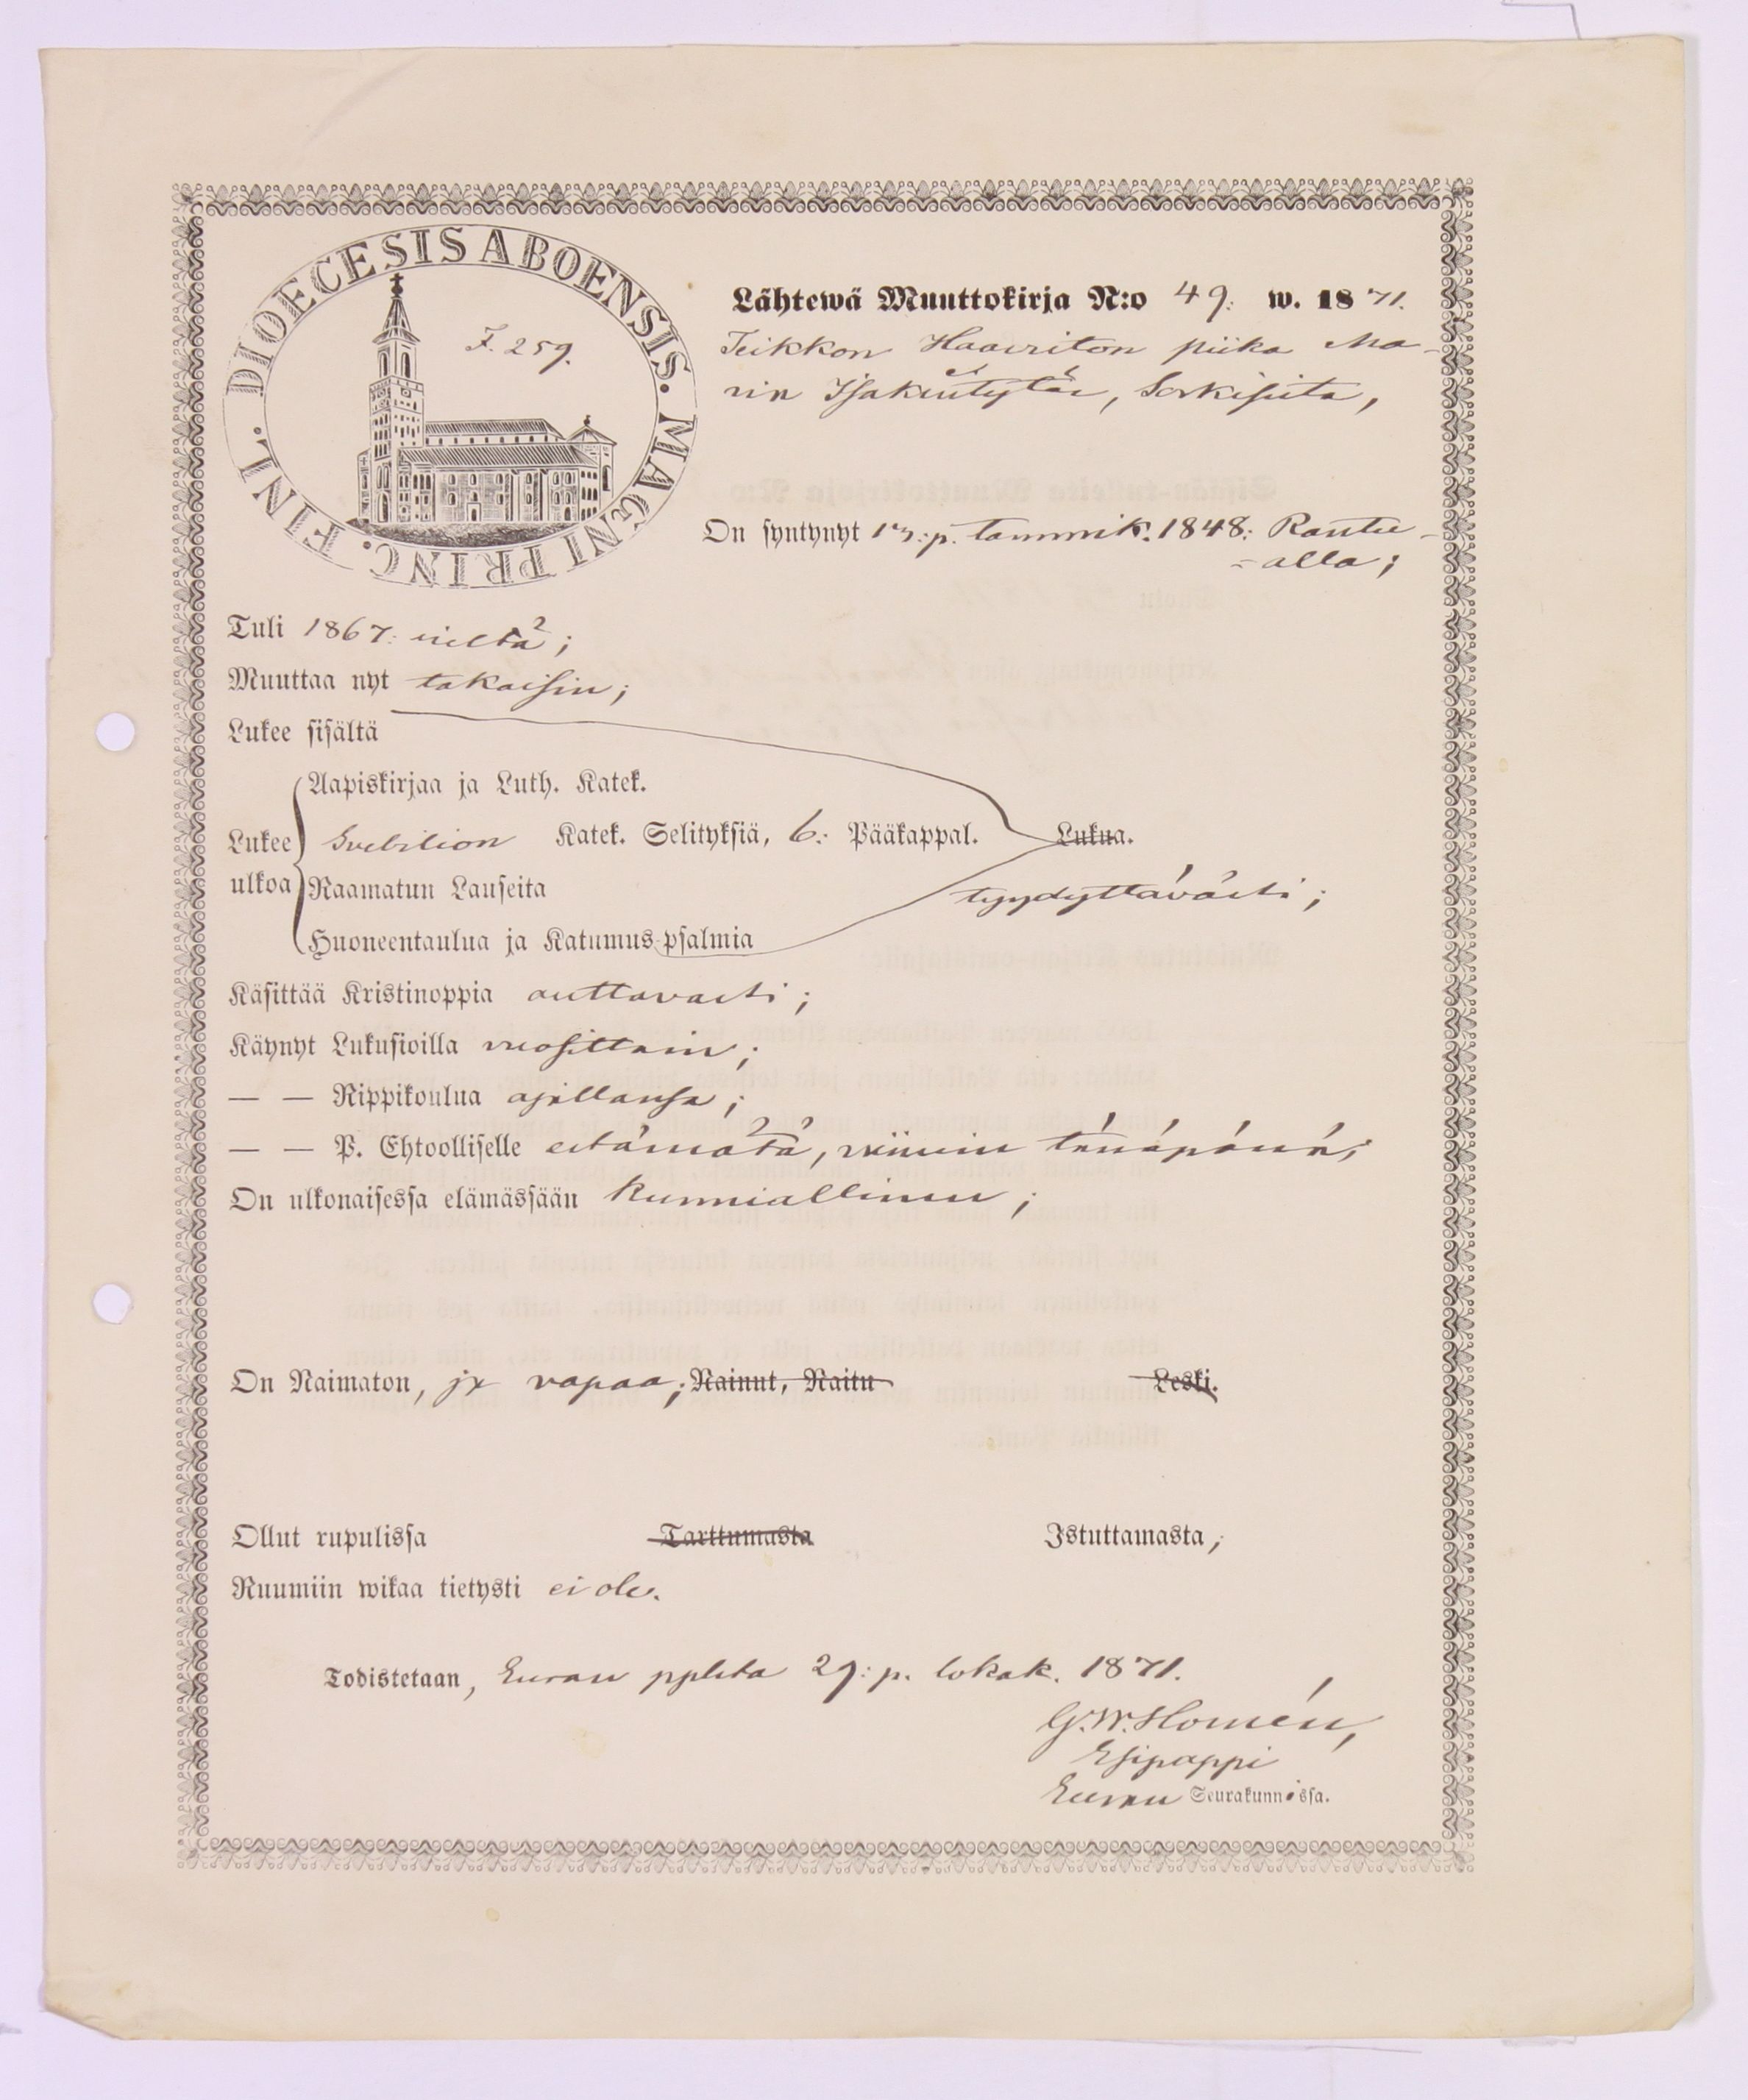 DIOECESIS ABOENSIS. MAGNI PRINC. FINL.
F. 259.
Lähtewä Muuttokirja N:o 49: w. 1871.
Teikkon Haaviston piika Ma-
rin Isakintytär, Sorkisista,
On syntynyt 13:p. tammik. 1848: Rantu-
=alla;
Tuli 1867: sieltä;
Muuttaa nyt takaisin;
Lukee sisältä
Aapiskirjaa ja Luth. Katek.
Lukee Svebilion Katek. Selityksiä, 6: Pääkappal. Lukua.
ulkoa Raamatun Lauseita tyydyttävästi;
Huoneentaulua ja Katumus-psalmia
Käsittää Kristinoppia auttavasti;
Käynyt Lukusioilla vuosittain;
— — Rippikoulua ajallansa;
— — P. Ehtoolliselle estämätä, viimein tänäpänä;
On ulkonaisessa elämässään kunniallinen;
On Naimaton, ja vapaa; Nainut, Naitu Leski.
Ollut rupulissa Tarttumasta Istuttamasta,
Ruumiin wikaa tietysti ei ole.
Todistetaan, Euran pplsta 29:p. lokak. 1871.
G. W. Homén,
Esipappi
Euran Seurakunnassa.